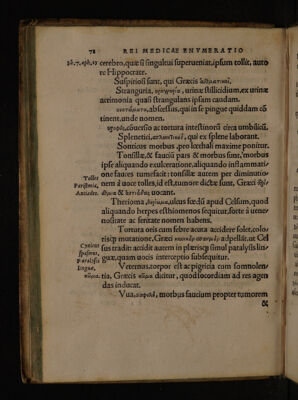 78 REI MEDICAE ENVMERATIO
cerebro, quæ si singultui superueniat, ipsum tollit, auto
re Hippocrate.
Suspitiosi sunt, qui Græcis
Stranguria, urinæ stillicidium, ex urinæ
acrimonia quasi strangulans ipsam caudam.
abscessus, qui in se pingue quiddam cõ
tinent, unde nomen.
cõuersio ac tortura intestinorũ circa umbilicũ.
Splenetici, qui ex splene laborant.
Sonticus morbus, pro lœthali maxime ponitur.
Tonsillæ, & fauciũ pars & morbus sunt, morbus
ipse aliquando exulceratione, aliquando inflammati
one fauces tumefacit: tonsillæ autem per diminutio
nem à uoce tolles, id est, tumore dictæ sunt. Græci
& uocant.
Tolles
Paristmia,
Antiades.
Therioma, ulcus fœdũ apud Celsum, quod
aliquando herpes esthiomenos sequitur, forte à uene
nositate ac feritate nomen habens.
Tortura oris cum febre acuta accidere solet, colo-
ris mutatione, Græci appellãt, ut Cel
sus tradit: accidit autem in plerisq; simul paralysis lin
guæ, quam uocis interceptio subsequitur.
Cynicus
spasmus,
Paralysis
linguæ,
Veternus, torpor est ac pigricia cum somnolen
tia. Græcis dicitur, quod socordiam ad res agen
das inducat.
Vua, morbus faucium propter tumorem
&